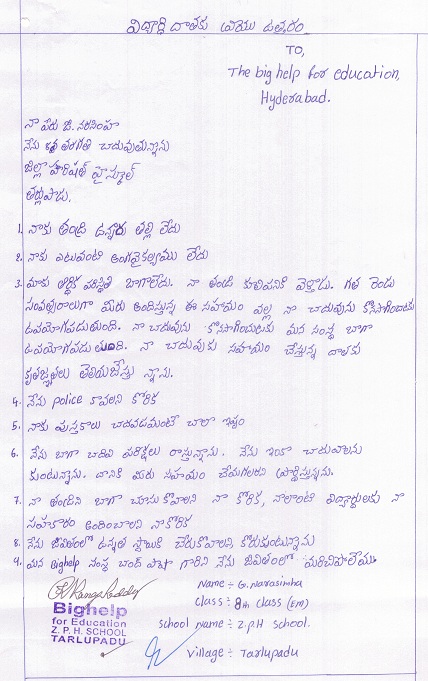 విద్యార్థి దాతకు వ్రాయు ఉత్తరం
TO,
The big help for education,
Hyderabad.
నా పేరు జి. నరసింహ
నేను 8వ తరగతి చదువుతున్నాను
జిల్లా పరిషత్ హైస్కూల్
తర్లుపాడు.
1. నాకు తండ్రి ఉన్నారు తల్లి లేదు
2. నాకు ఎటువంటి అంగవైకల్యము లేదు
3. మాకు ఆర్థిక పరిస్థితి బాగాలేదు. నా తండ్రి కూలిపనికి వెళ్తాడు. గత రెండు
సంవత్సరాలుగా మీరు అందిస్తున్న ఈ సహాయం వల్ల నా చదువును కొనసాగించుటకు
ఉపయోగపడుతుంది. నా చదువును కొనసాగించుటకు మన సంస్థ బాగా
ఉపయోగపడుతుంది. నా చదువుకు సహాయం చేస్తున్న దాతకు
కృతజ్ఞతలు తెలియజేస్తు న్నాను.
4. నేను police కావలని కోరిక
5. నాకు పుస్తకాలు చదవడమంటే చాలా ఇష్టం
6. నేను బాగా చదివి పరిక్షలు రాస్తున్నాను. నేను ఇంకా చదువాలను
కుంటున్నాను. దానికి మీరు సహాయం చేయగలరని ప్రార్థిస్తున్నను.
7. నా తండ్రిని బాగా చూసుకోవాలని నా కోరిక, నాలాంటి విద్యార్థులకు నా
సహకారం అందించాలని నాకోరిక
8. నేను జీవితంలో ఉన్నత స్థాయికి చేరుకోవాలని కోరుకుంటున్నాను
9. మన Bighelp సంస్థ చాంద్ పాషా గారిని నేను జీవితంలో మరిచిపోలేము.
Name :- G. Narasimha
Class :- 8th class (EM)
School name :- Z.P.H School.
Village :- Tarlupadu
Bighelp
for Education
Z. P. H. SCHOOL
TARLUPADU